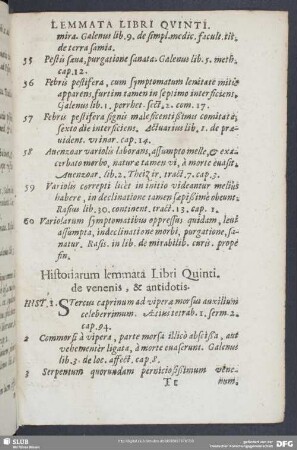 LEMMATA LIBRI QVINTI.
mira. Galenus lib. 9. de simpl. medic. facult. tit.
de terra samia.
55 Pestis sæua, purgatione sanata. Galenus lib. 5. meth.
cap. 12.
56 Febris pestifera, cum symptomatum lenitate mitis
apparens, furtim tamen in septimo interficiens.
Galenus lib. 1. porrhet. sect. 2. com. 17.
57 Febris pestifera signis maleficentissimis comitata,
sexto die interficiens. Actuarius lib. 1. de præ-
uident. vrinor. cap. 14.
58 Auenzoar variolis laborans, assumpto melle, & ex-
acerbato morbo, naturæ tamen vi, à morte euasit.
Auenzoar. lib. 2. Theizir, tract. 7. cap. 3.
59 Variolis correpti licèt in initio videantur meliùs
habere, in declinatione tamen sæpissimè obeunt.
Rasius lib. 30. continent. tract. 13. cap. 1.
60 Variolarum symptomatibus oppressus quidam, lens
assumpta, in declinatione morbi, purgatione, sa-
natur. Rasis. in lib. de mirabilib. curis. propè
fin.
Historiarum lemmata Libri Quinti.
de venenis, & antidotis.
HIST. 1. Stercus caprinum ad viperæ morsus auxilium
celeberrimum. Aëtius tetrab. 1. serm. 2.
cap. 94.
2 Commorsi à vipera, parte morsa illicò abscissa, aut
vehementèr ligata, à morte euaserunt. Galenus
lib. 3. de loc. affect. cap. 8.
3 Serpentum quorundam perniciosissimum vene-
Tt num.
SLUB
DFG